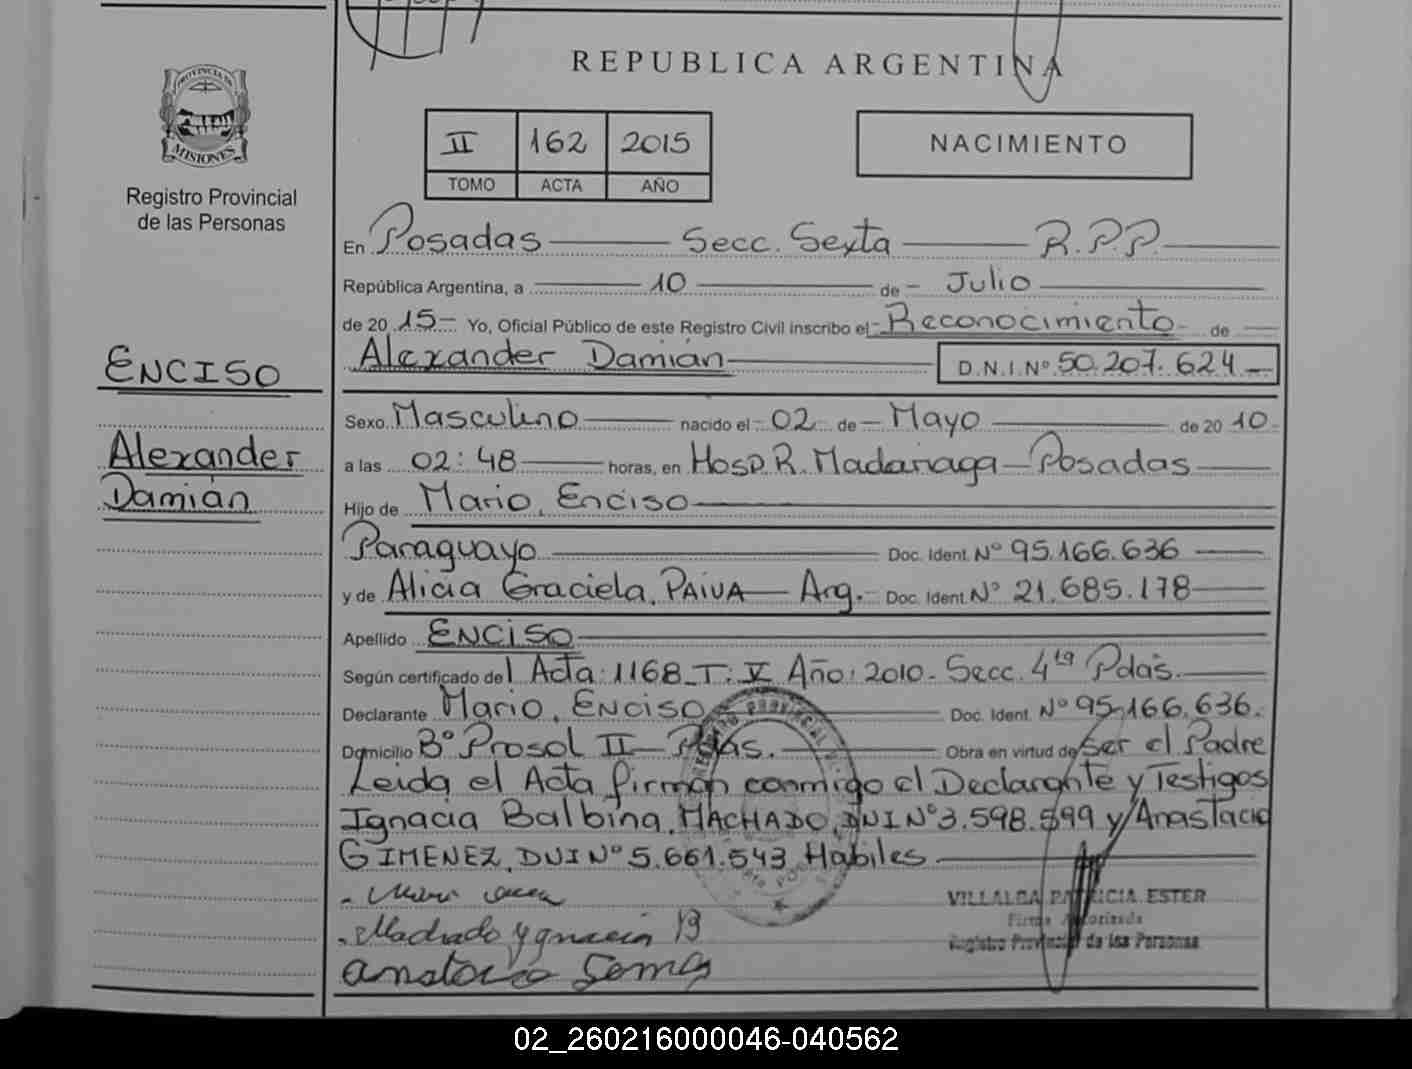 REPUBLICA ARGENTINA
II 162 2015
TOMO ACTA AÑO
NACIMIENTO
PROVINCIA DE
MISIONES
Registro Provincial
de las Personas
ENCISO
Alexander
Damián
En Posadas Secc. Sexta R.P.P.
República Argentina, a 10 de Julio
de 20 15 Yo, Oficial Público de este Registro Civil inscribo el Reconocimiento de
Alexander Damián D.N.I.Nº 50.207.624
Sexo Masculino nacido el 02 de Mayo de 20 10
a las 02:48 horas, en Hosp. R. Madariaga - Posadas
Hijo de Mario, Enciso
Paraguayo Doc. Ident. Nº 95.166.636
y de Alicia Graciela, PAIVA Arg. Doc. Ident. Nº 21.685.178
Apellido ENCISO
Según certificado de l Acta: 1168 T: V Año: 2010 - Secc. 4ta Pdas.
Declarante Mario, ENCISO Doc. Ident. Nº 95.166.636.
Domicilio Bº Prosol II - Pdas. Obra en virtud de Ser el Padre
Leida el Acta firman conmigo el Declarante y Testigos
Ignacia Balbina, MACHADO, DNI Nº 3.598.599 y Anastacio
GIMENEZ, DNI Nº 5.661.543 Habiles
Machado Ygnacia B
VILLALBA PATRICIA ESTER
Firma Autorizada
Registro Provincial de las Personas
02_260216000046-040562